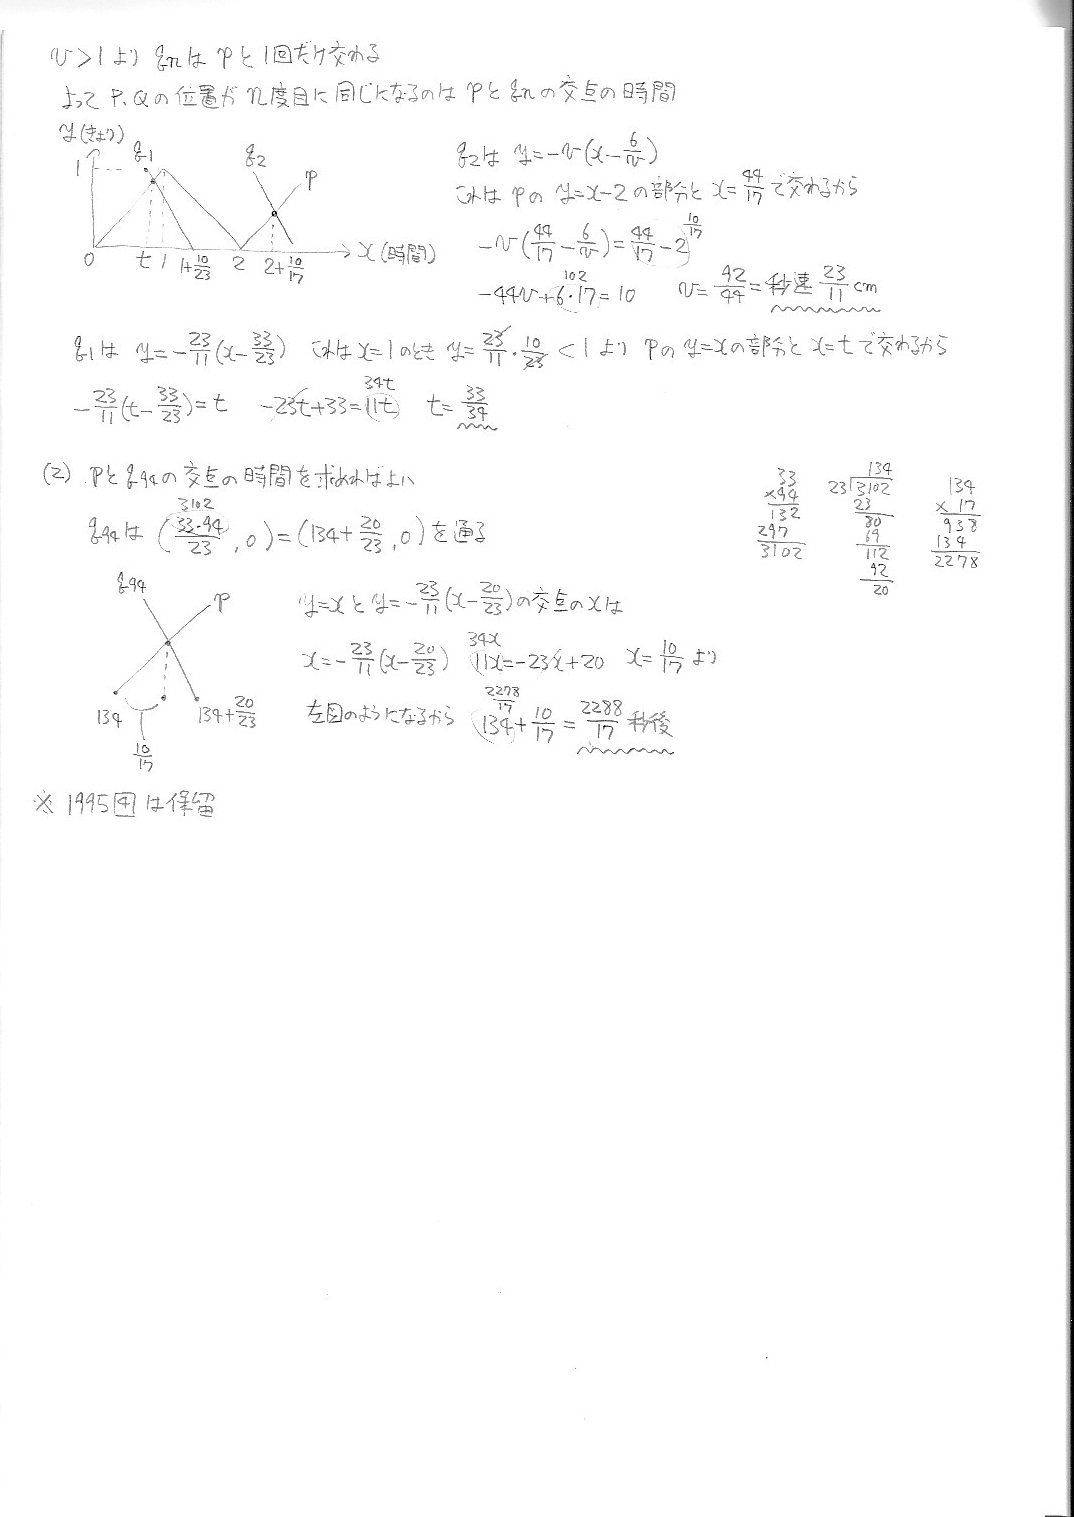 v>1より qnはpと1回だけ交わる
よってP,Qの位置がn度目に同じになるのはpとqnの交点の時間
y(きょり)
1
q1
q2
p
0 t 1 1+10/23 2 2+10/17 x(時間)
q2は y=-v(x-6/v)
これはpの y=x-2の部分とx=44/17で交わるから
-v(44/17-6/v)=44/17-2 10/17
-44v+6・17=10 102 v=92/44=秒速23/11cm
q1は y=-23/11(x-33/23) これはx=1のとき y=23/11・10/23<1より pのy=xの部分とx=tで交わるから
-23/11(t-33/23)=t -23t+33=11t 34t t=33/34
(2) pとq94の交点の時間を求めればよい
q94は (33・94/23,0)=(134+20/23,0)を通る 3102
q94
p
134
134+20/23
10/17
y=xとy=-23/11(x-20/23)の交点のxは
x=-23/11(x-20/23) 11x=-23x+20 34x x=10/17より
左図のようになるから 134+10/17=2288/17秒後 2278/17
33
×94
132
297
3102
134
23)3102
23
80
69
112
92
20
134
×17
938
134
2278
※ 1995 4 は保留